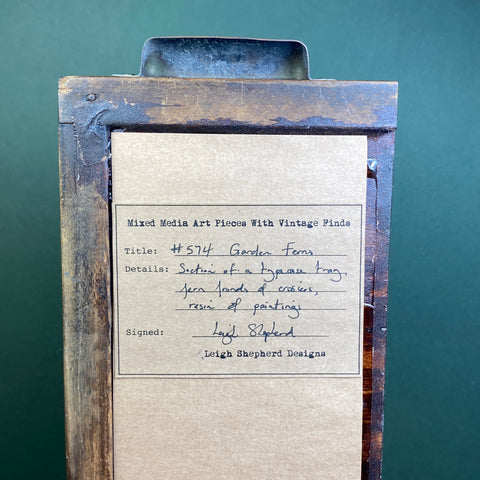 Mixed Media Art Pieces With Vintage Finds
Title: #574 Garden Ferns
Details: Section of a typecase tray,
fern fronds & crosiers,
resin & paintings
Signed: Leigh Shepherd
Leigh Shepherd Designs